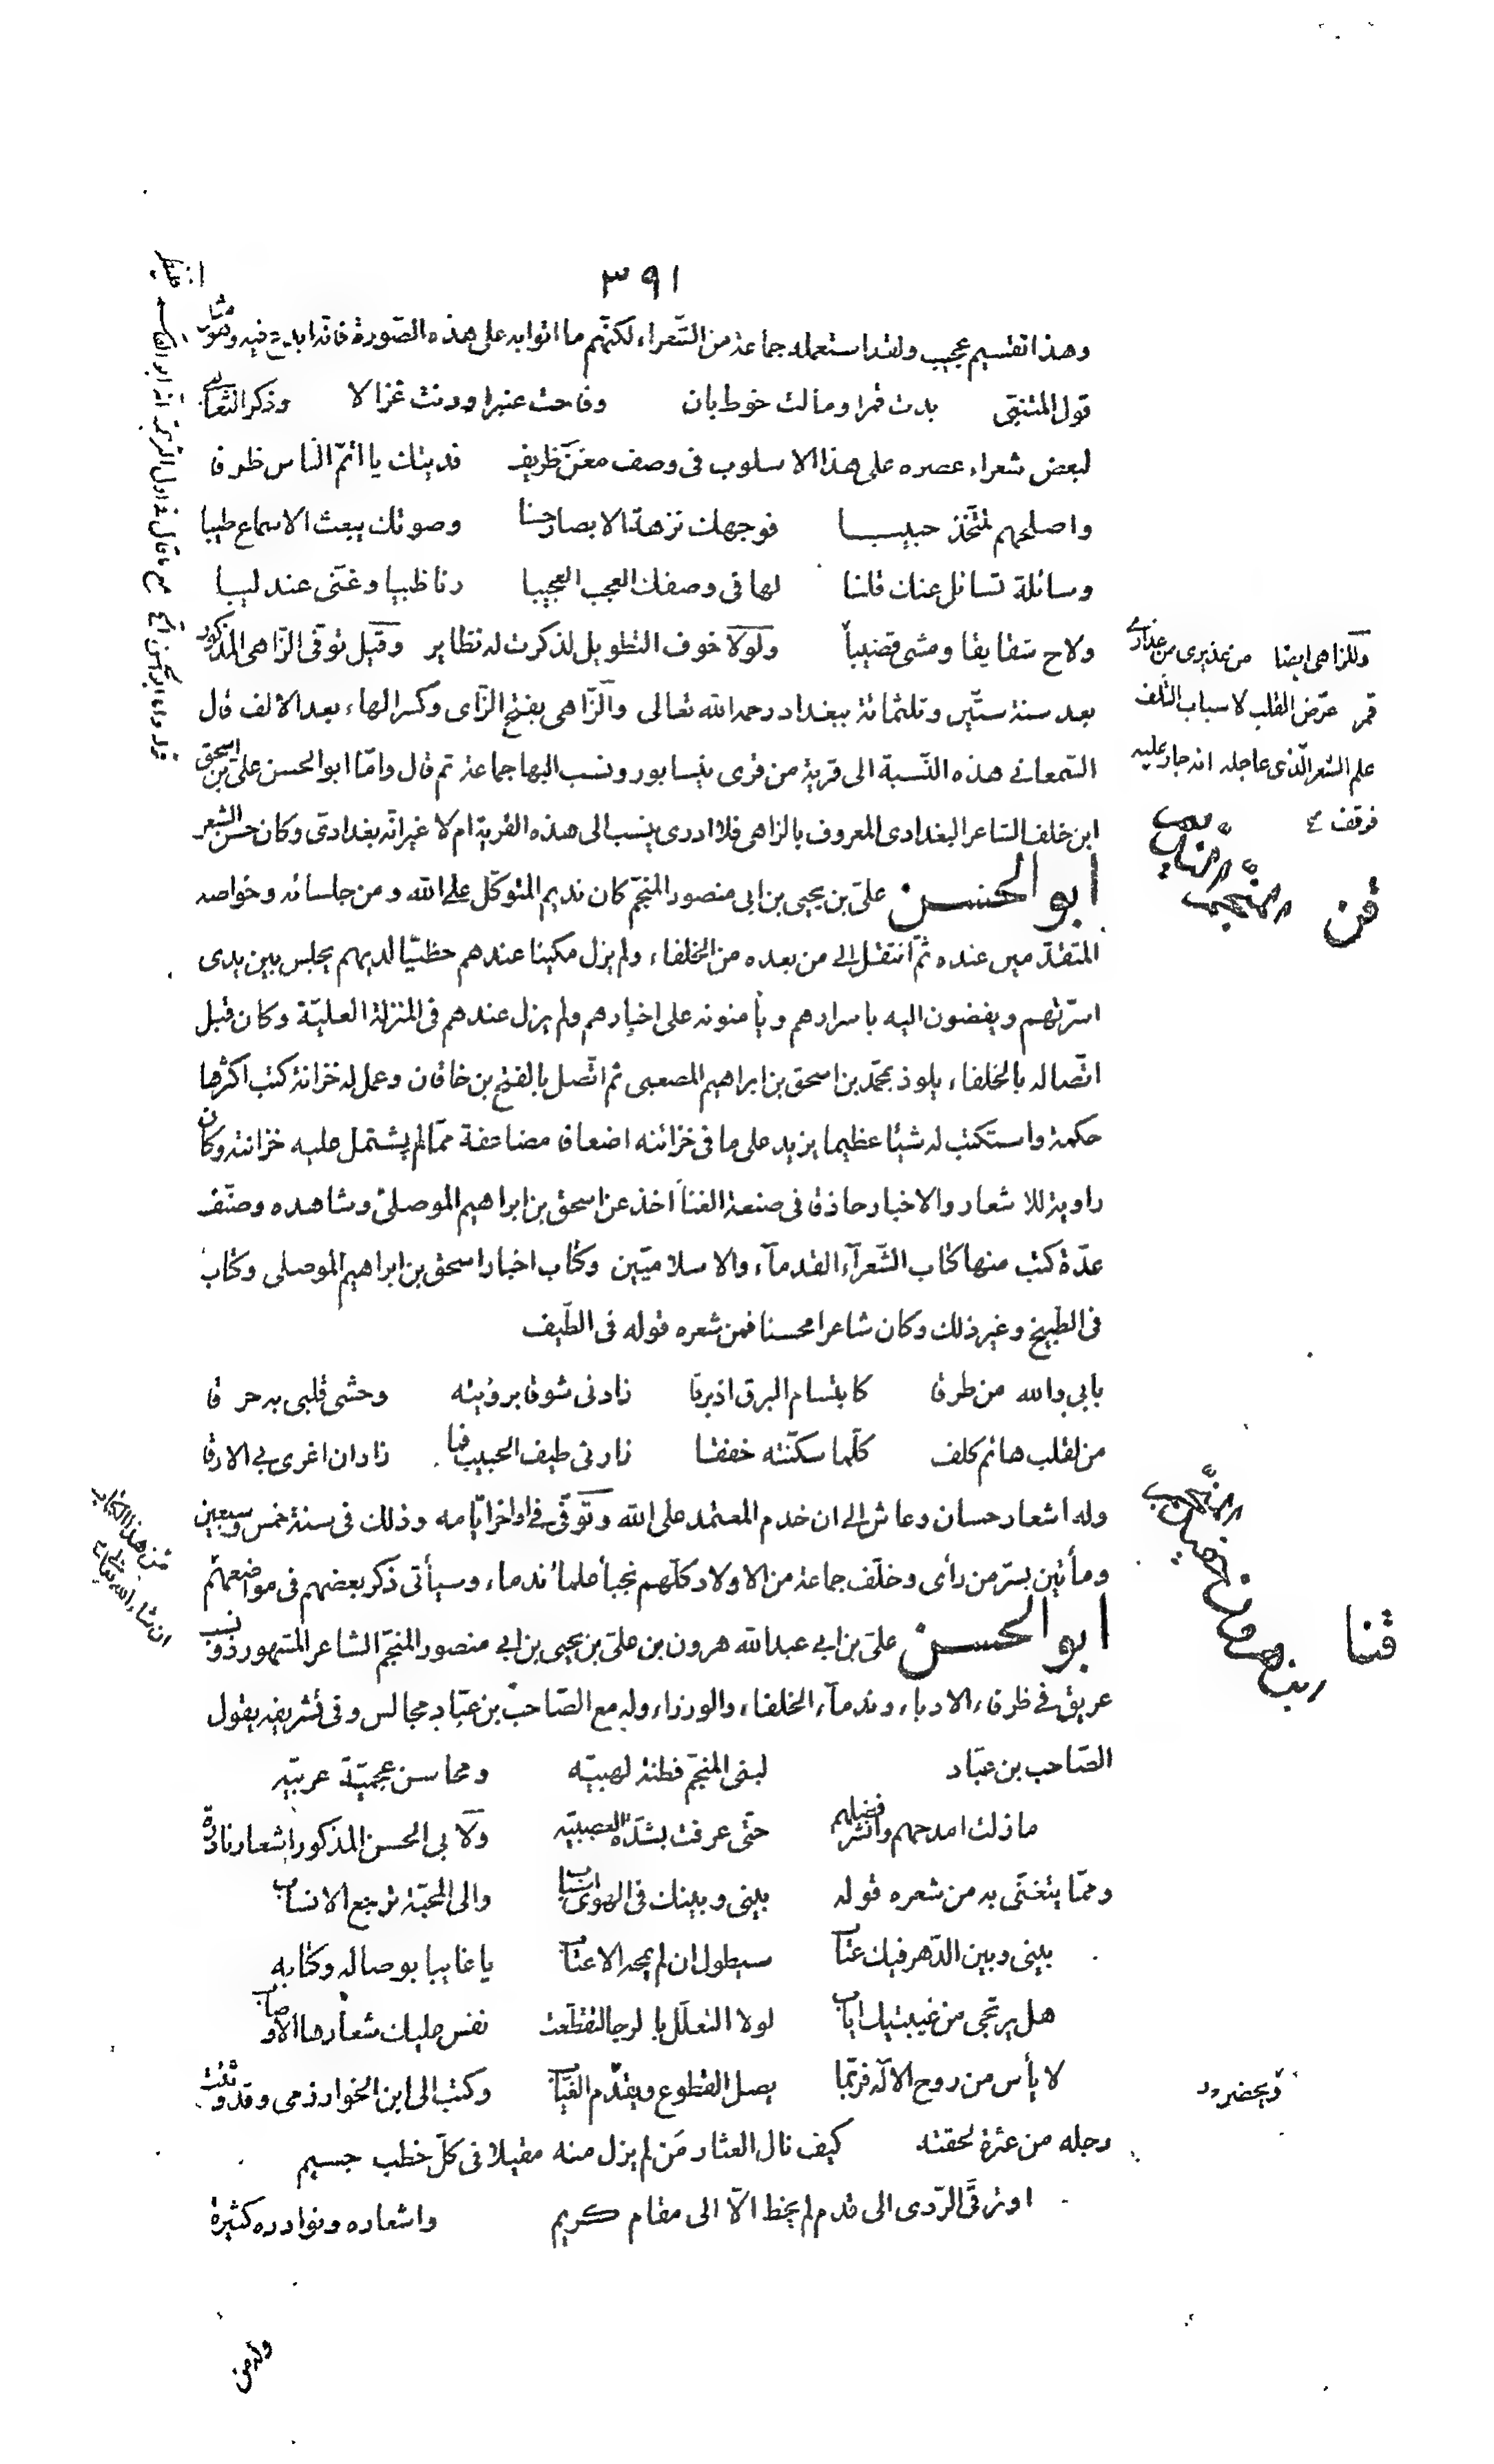 ٣٩١
وهذا تقسيم عجيب ولقد استعمله جماعة من الشعراء لكنهم ما اتوا به على هذه الصورة فانه ابدع فيه وهو مثل
قول المتنبي بدت قمرا ومالت خوط بان وفاحت عنبرا ورنت غزالا وذكر الثعالبي
لبعض شعراء عصره على هذا الاسلوب في وصف مغن ظريف فديتك يا اتم الناس ظرفا
واصلحهم لمتخذ حبيبا فوجهك نزهة الابصار حسنا وصوتك يبعث الاسماع طيبا
وسائلة تسائل عنك قلنا لها في وصفك العجب العجيبا رنا ظبيا وغنى عندليبا
ولاح شقايقا ومشى قضيبا ولولا خوف التطويل لذكرت له نظاير وقيل توفي الزاهي المذكور
بعد سنة ستين وثلثمائة ببغداد رحمه الله تعالى والزاهي بفتح الزاى وكسر الهاء بعد الالف قال
السمعاني هذه النسبة الى قرية من قرى نيسابور ونسب اليها جماعة ثم قال واما ابو الحسن علي بن اسحق
ابن خلف الشاعر البغدادى المعروف بالزاهي فلا ادرى ينسب الى هذه القرية ام لا غير انه بغدادي وكان حسن الشعر
وللزاهي ايضا من عذيرى من عذارى
قمر عرض القلب لاسباب التلف
علم الشعر الذى عاجله انه جار عليه
فوقف
ابو الحسن علي بن يحيى بن ابى منصور المنجم كان نديم المتوكل على الله ومن جلسائه وخواصه
المتقدمين عنده ثم انتقل الى من بعده من الخلفاء ولم يزل مكينا عندهم حظيا لديهم يجلس بين يدى
اسرتهم ويفضون اليه باسرارهم ويأمنونه على اخبارهم ولم يزل عندهم في المنزلة العلية وكان قبل
اتصاله بالخلفاء يلوذ بمحمد بن اسحق بن ابراهيم المصعبى ثم اتصل بالفتح بن خاقان وعمل له خزانة كتب اكثرها
حكمة واستكتب له شيئا عظيما يزيد على ما في خزائنه اضعاف مضاعفة مما لم يشتمل عليه خزانته وكان
راوية للاشعار والاخبار حاذقا في صنعة الغناء اخذ عن اسحق بن ابراهيم الموصلي وشاهده وصنف
عدة كتب منها كتاب الشعرآء القدمآء والاسلاميين وكتاب اخبار اسحق بن ابراهيم الموصلي وكتاب
في الطبيخ وغير ذلك وكان شاعرا محسنا فمن شعره قوله في الطيف
بابي والله من طرقا كابتسام البرق اذ برقا زادنى شوقا برؤيته وحشى قلبى به حرقا
من لقلب هائم كلف كلما سكنته خفقا زارنى طيف الحبيب فما زاد ان اغرى بي الارقا
وله اشعار حسان وعاش الى ان خدم المعتمد على الله وتوفي في اواخر ايامه وذلك في سنة خمس وسبعين
ومأتين بسر من رأى وخلف جماعة من الاولاد كلهم نجبا علما ندماء وسيأتى ذكر بعضهم في مواضعهم
من هذا الكتاب
ان شاء الله تعالى
ابو الحسن علي بن ابي عبد الله هرون بن علي بن يحيى بن ابي منصور المنجم الشاعر المشهور ذو نسب
عريق في ظرفاء الادباء وندمآء الخلفاء والوزراء وله مع الصاحب بن عباد مجالس وفي تشريفه يقول
الصاحب بن عباد لبنى المنجم فطنة لهبيه ومحاسن عجمية عربيه
ما زلت امدحهم وانشر فضلهم حتى عرفت بشدة العصبيه ولابى الحسن المذكور اشعار نادرة
ومما يتغنى به من شعره قوله بينى وبينك في الهوى اسباب والى المحبة ترجع الانساب
بينى وبين الدهر فيك عتاب سيطول ان لم يمحه الاعتاب يا غايبا بوصاله وكتابه
هل يرتجى من غيبتيك اياب لولا التعلل بالرجا لتقطعت نفس عليك شعارها الاوصاب
لا يأس من روح الاله فربما يصل القطوع ويقدم الغياب وكتب الى ابن الخوارزمى وقد وثئت
ويحضر
رجله من عثرة لحقته كيف نال العثار من لم يزل منه مقيلا في كل خطب جسيم
او ترقى الردى الى قدم لم يخط الا الى مقام كريم واشعاره ونوادره كثيرة
وله من